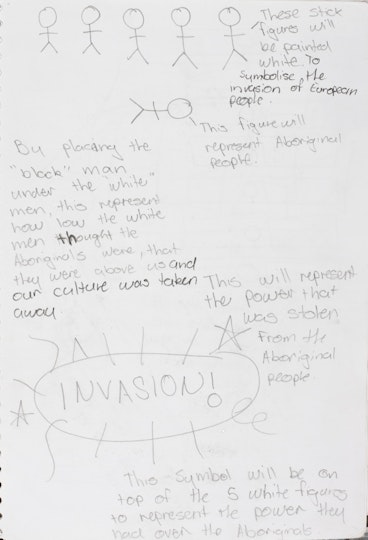 These stick
figures will
be painted
white. To
symbolise the
invasion of European
people.
This figure will
represent Aboriginal
people.
By placing the
"black" man
under the "white"
men, this represent
how low the white
men thought the
Aboriginals were, that
they were above us and
our culture was taken
away.
This will represent
the power that
was stolen
from the
Aboriginal
people.
INVASION!
This symbol will be on
top of the 5 white figures
to represent the power they
had over the Aboriginals.